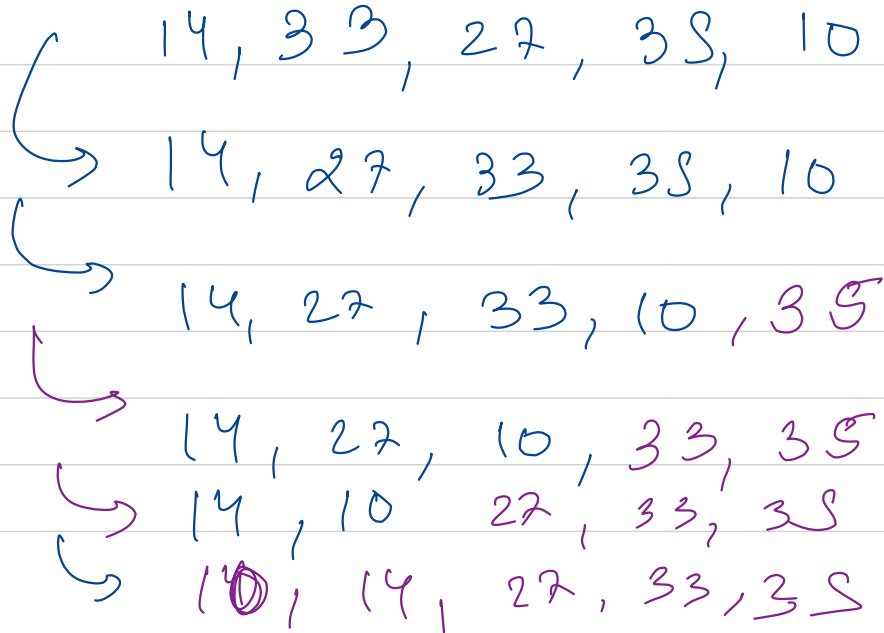 14, 33, 27, 35, 10
14, 27, 33, 35, 10
14, 27, 33, 10, 35
14, 27, 10, 33, 35
14, 10 27, 33, 35
10, 14, 27, 33, 35